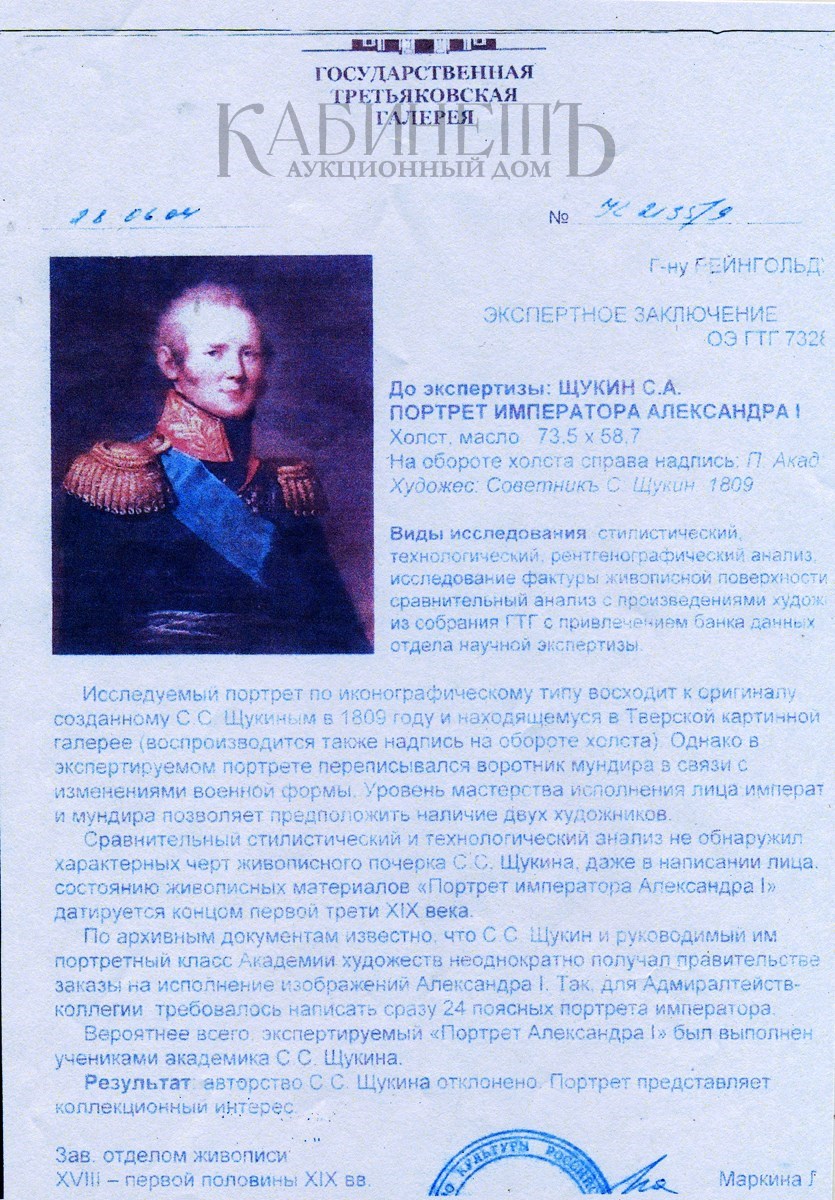 ГОСУДАРСТВЕННАЯ
ТРЕТЬЯКОВСКАЯ
ГАЛЕРЕЯ
КАБИНЕТЪ
АУКЦИОННЫЙ ДОМ
28 06 04
№
Г-ну РЕЙНГОЛЬД
ЭКСПЕРТНОЕ ЗАКЛЮЧЕНИЕ
ОЭ ГТГ 7328
До экспертизы: ЩУКИН С.А.
ПОРТРЕТ ИМПЕРАТОРА АЛЕКСАНДРА I
Холст, масло 73.5 х 58,7
На обороте холста справа надпись: П. Акад
Художес: Советникъ С. Щукин 1809
Виды исследования: стилистический,
технологический, рентгенографический анализ,
исследование фактуры живописной поверхности
сравнительный анализ с произведениями худож
из собрания ГТГ с привлечением банка данных
отдела научной экспертизы.
Исследуемый портрет по иконографическому типу восходит к оригиналу
созданному С.С. Щукиным в 1809 году и находящемуся в Тверской картинной
галерее (воспроизводится также надпись на обороте холста). Однако в
экспертируемом портрете переписывался воротник мундира в связи с
изменениями военной формы. Уровень мастерства исполнения лица императ
и мундира позволяет предположить наличие двух художников.
Сравнительный стилистический и технологический анализ не обнаружил
характерных черт живописного почерка С.С. Щукина, даже в написании лица.
состоянию живописных материалов «Портрет императора Александра I»
датируется концом первой трети XIX века.
По архивным документам известно, что С.С. Щукин и руководимый им
портретный класс Академии художеств неоднократно получал правительстве
заказы на исполнение изображений Александра I. Так, для Адмиралтейств-
коллегии требовалось написать сразу 24 поясных портрета императора.
Вероятнее всего, экспертируемый «Портрет Александра I» был выполнен
учениками академика С.С. Щукина.
Результат: авторство С.С. Щукина отклонено. Портрет представляет
коллекционный интерес.
Зав. отделом живописи
XVIII – первой половины XIX вв.
КУЛЬТУРЫ РОССИЙС
Маркина Л